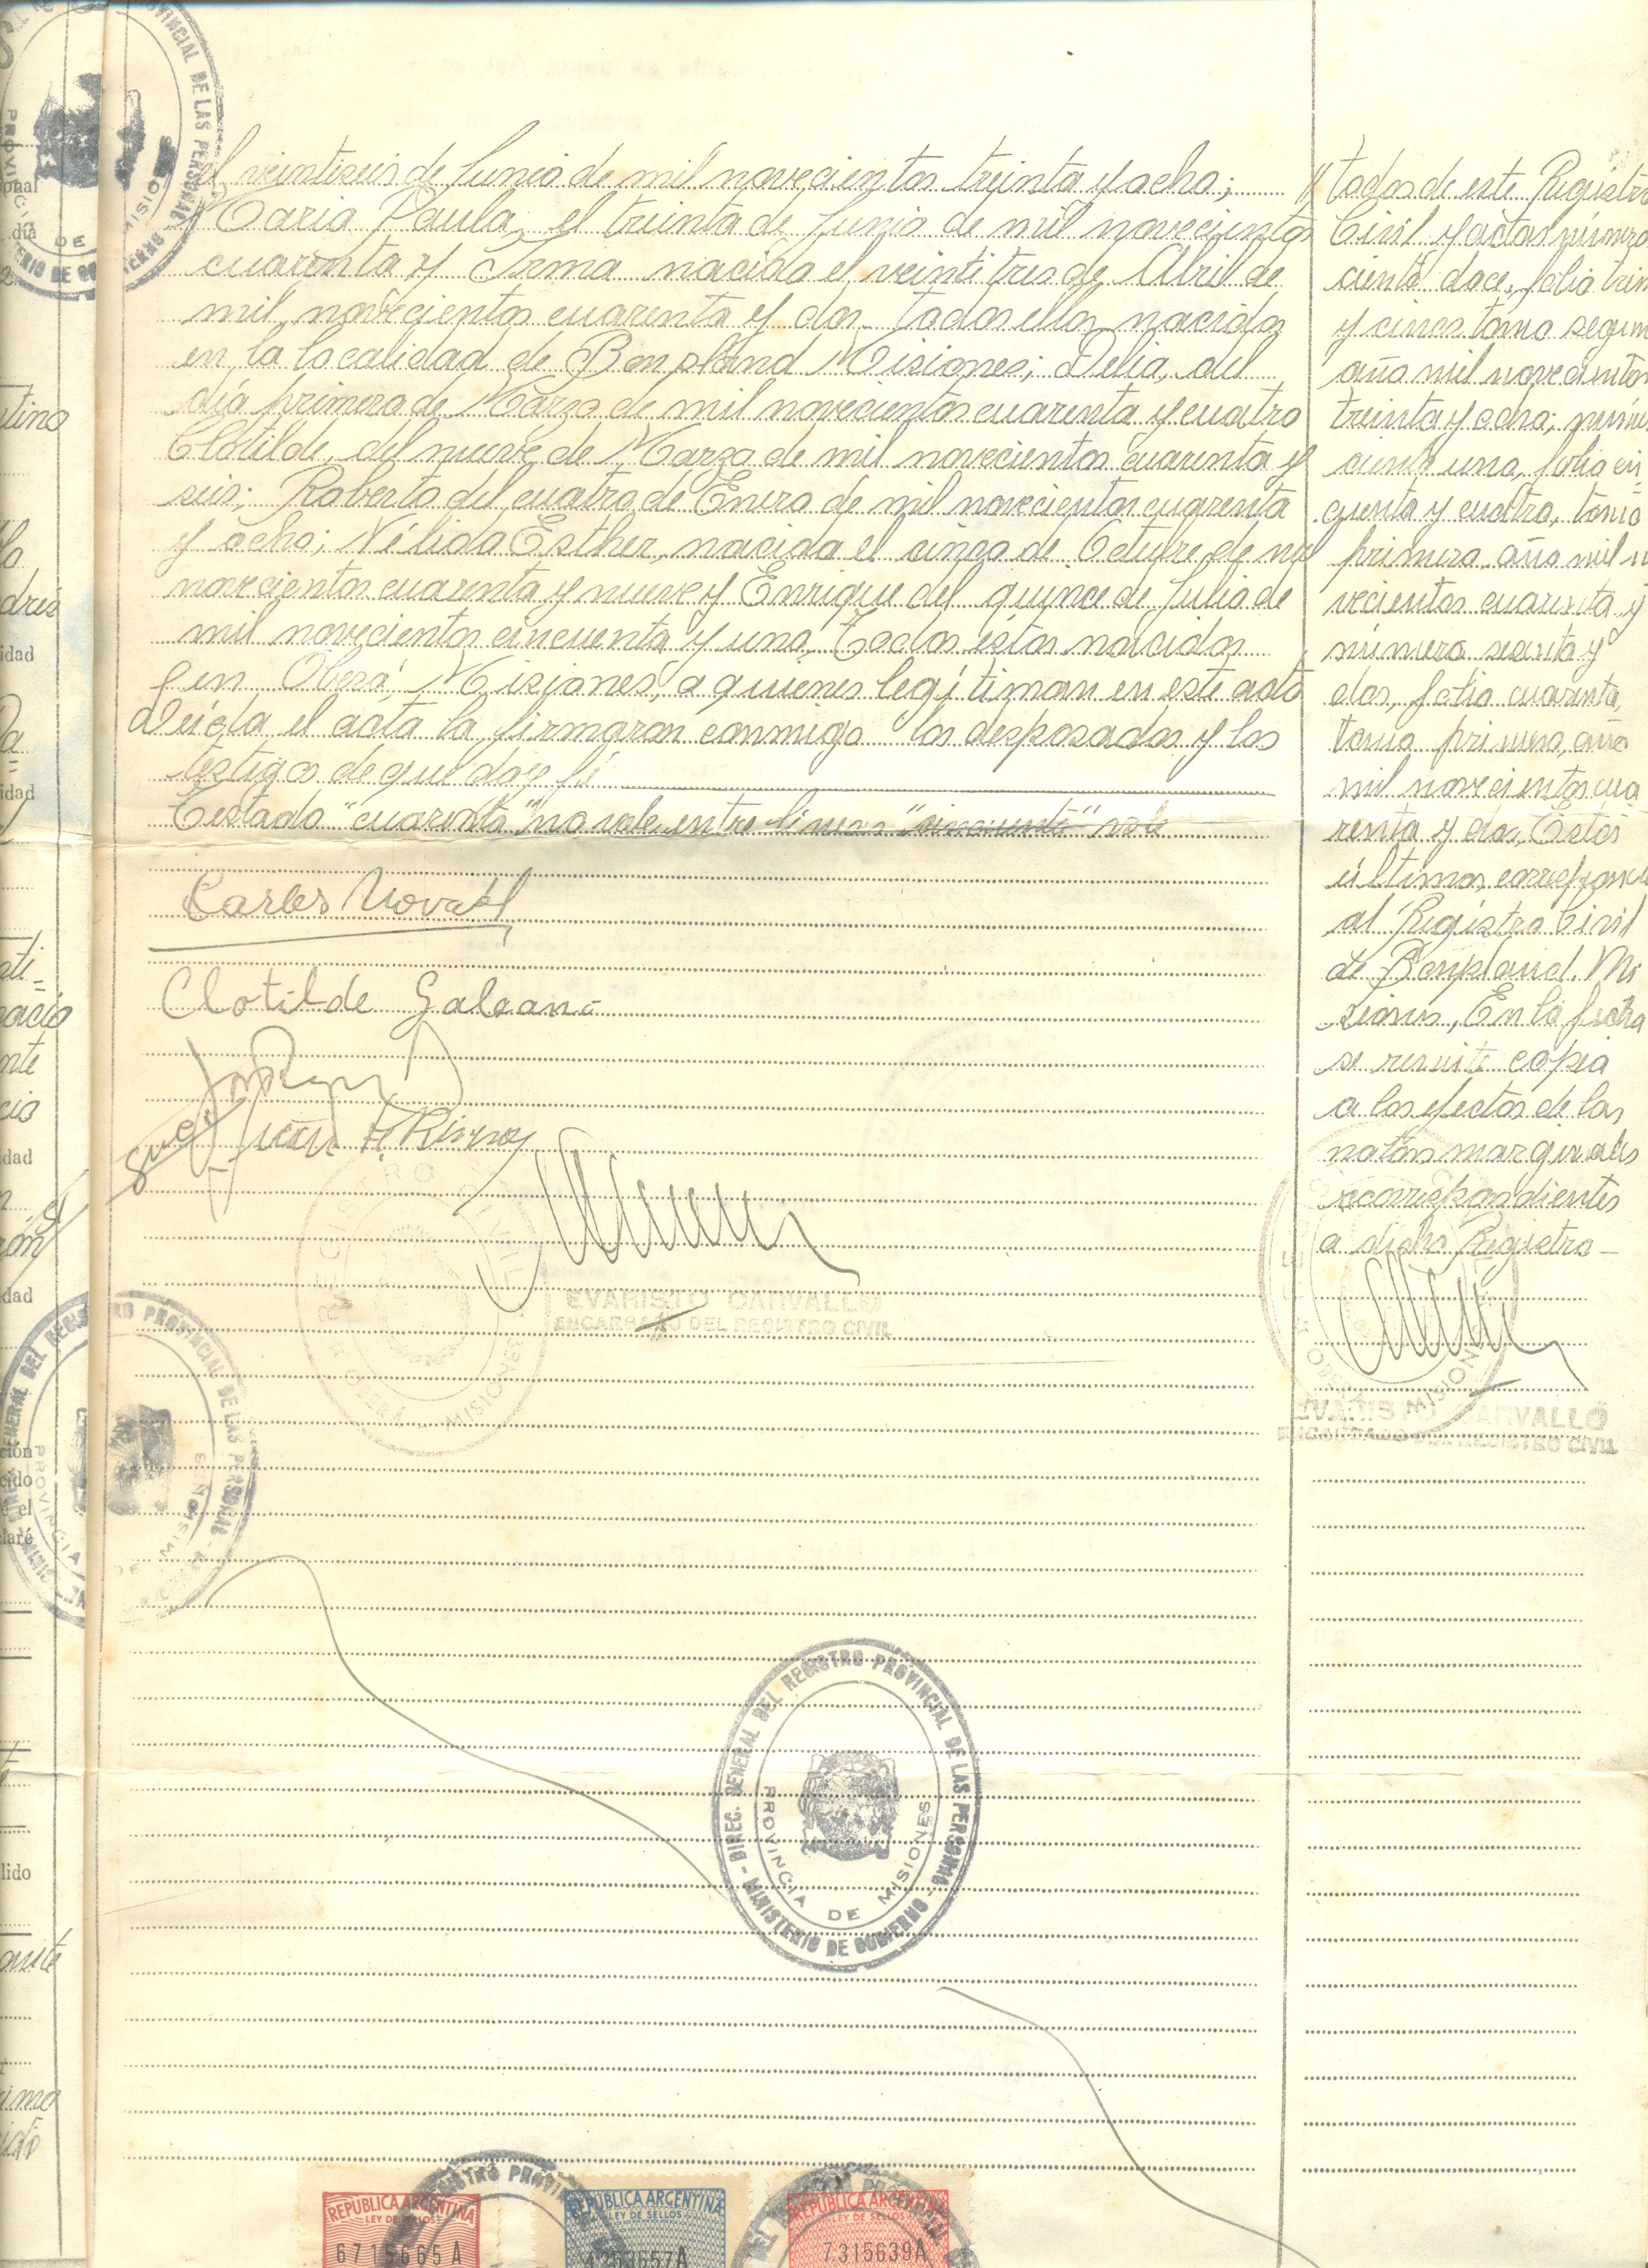 el veintiseis de Junio de mil novecientos treinta y ocho;
Maria Paula, el treinta de Junio de mil novecientos
cuarenta y Irma nacida el veintitres de Abril de
mil novecientos cuarenta y dos. todos ellos nacidos
en la localidad de Bonpland Misiones; Delia, del
dia primero de Marzo de mil novecientos cuarenta y cuatro
Clotilde, del nueve de Marzo de mil novecientos cuarenta y
seis; Roberto del cuatro de Enero de mil novecientos cuarenta
y ocho; Nélida Esther, nacida el cinco de Octubre de mil
novecientos cuarenta y nueve y Enrique del quince de Julio de
mil novecientos cincuenta y uno. Todos éstos nacidos
en Oberá, Misiones, a quienes legítiman en este acto
Leída el acta la firmaron conmigo los desposados y los
testigos de que doy fé
Testado "cuarenta" no vale entre lineas "cincuenta" vale
Carlos
Clotilde Galeano
EVARISTO CARVALLO
ENCARGADO DEL REGISTRO CIVIL
OBERA MISIONES
// tados de este Registro
Civil y actas número
ciento doce, folio trein
y cinco tomo segun
año mil novecientos
treinta y ocho; núme
ciento uno, folio cin
cuenta y cuatro, tomo
primero, año mil no
vecientos cuarenta y
número sesenta y
dos, folio cuarenta,
tomo primero, año
mil novecientos cua
renta y dos, Estos
últimos
al Registro Civil
de Bonpland. Mi
siones, En la fecha
se remite copia
a los efectos de las
notas marginales
correspondientes
a dicho Registro
EVARISTO CARVALLO
ENCARGADO DEL REGISTRO CIVIL
DIREC. GENERAL DEL REGISTRO PROVINCIAL DE LAS PERSONAS - MINISTERIO DE GOBIERNO
PROVINCIA DE MISIONES
REPUBLICA ARGENTINA
LEY DE SELLOS
6715665 A
REPUBLICA ARGENTINA
LEY DE SELLOS
4263657A
REPUBLICA ARGENTINA
LEY DE SELLOS
7.315639A